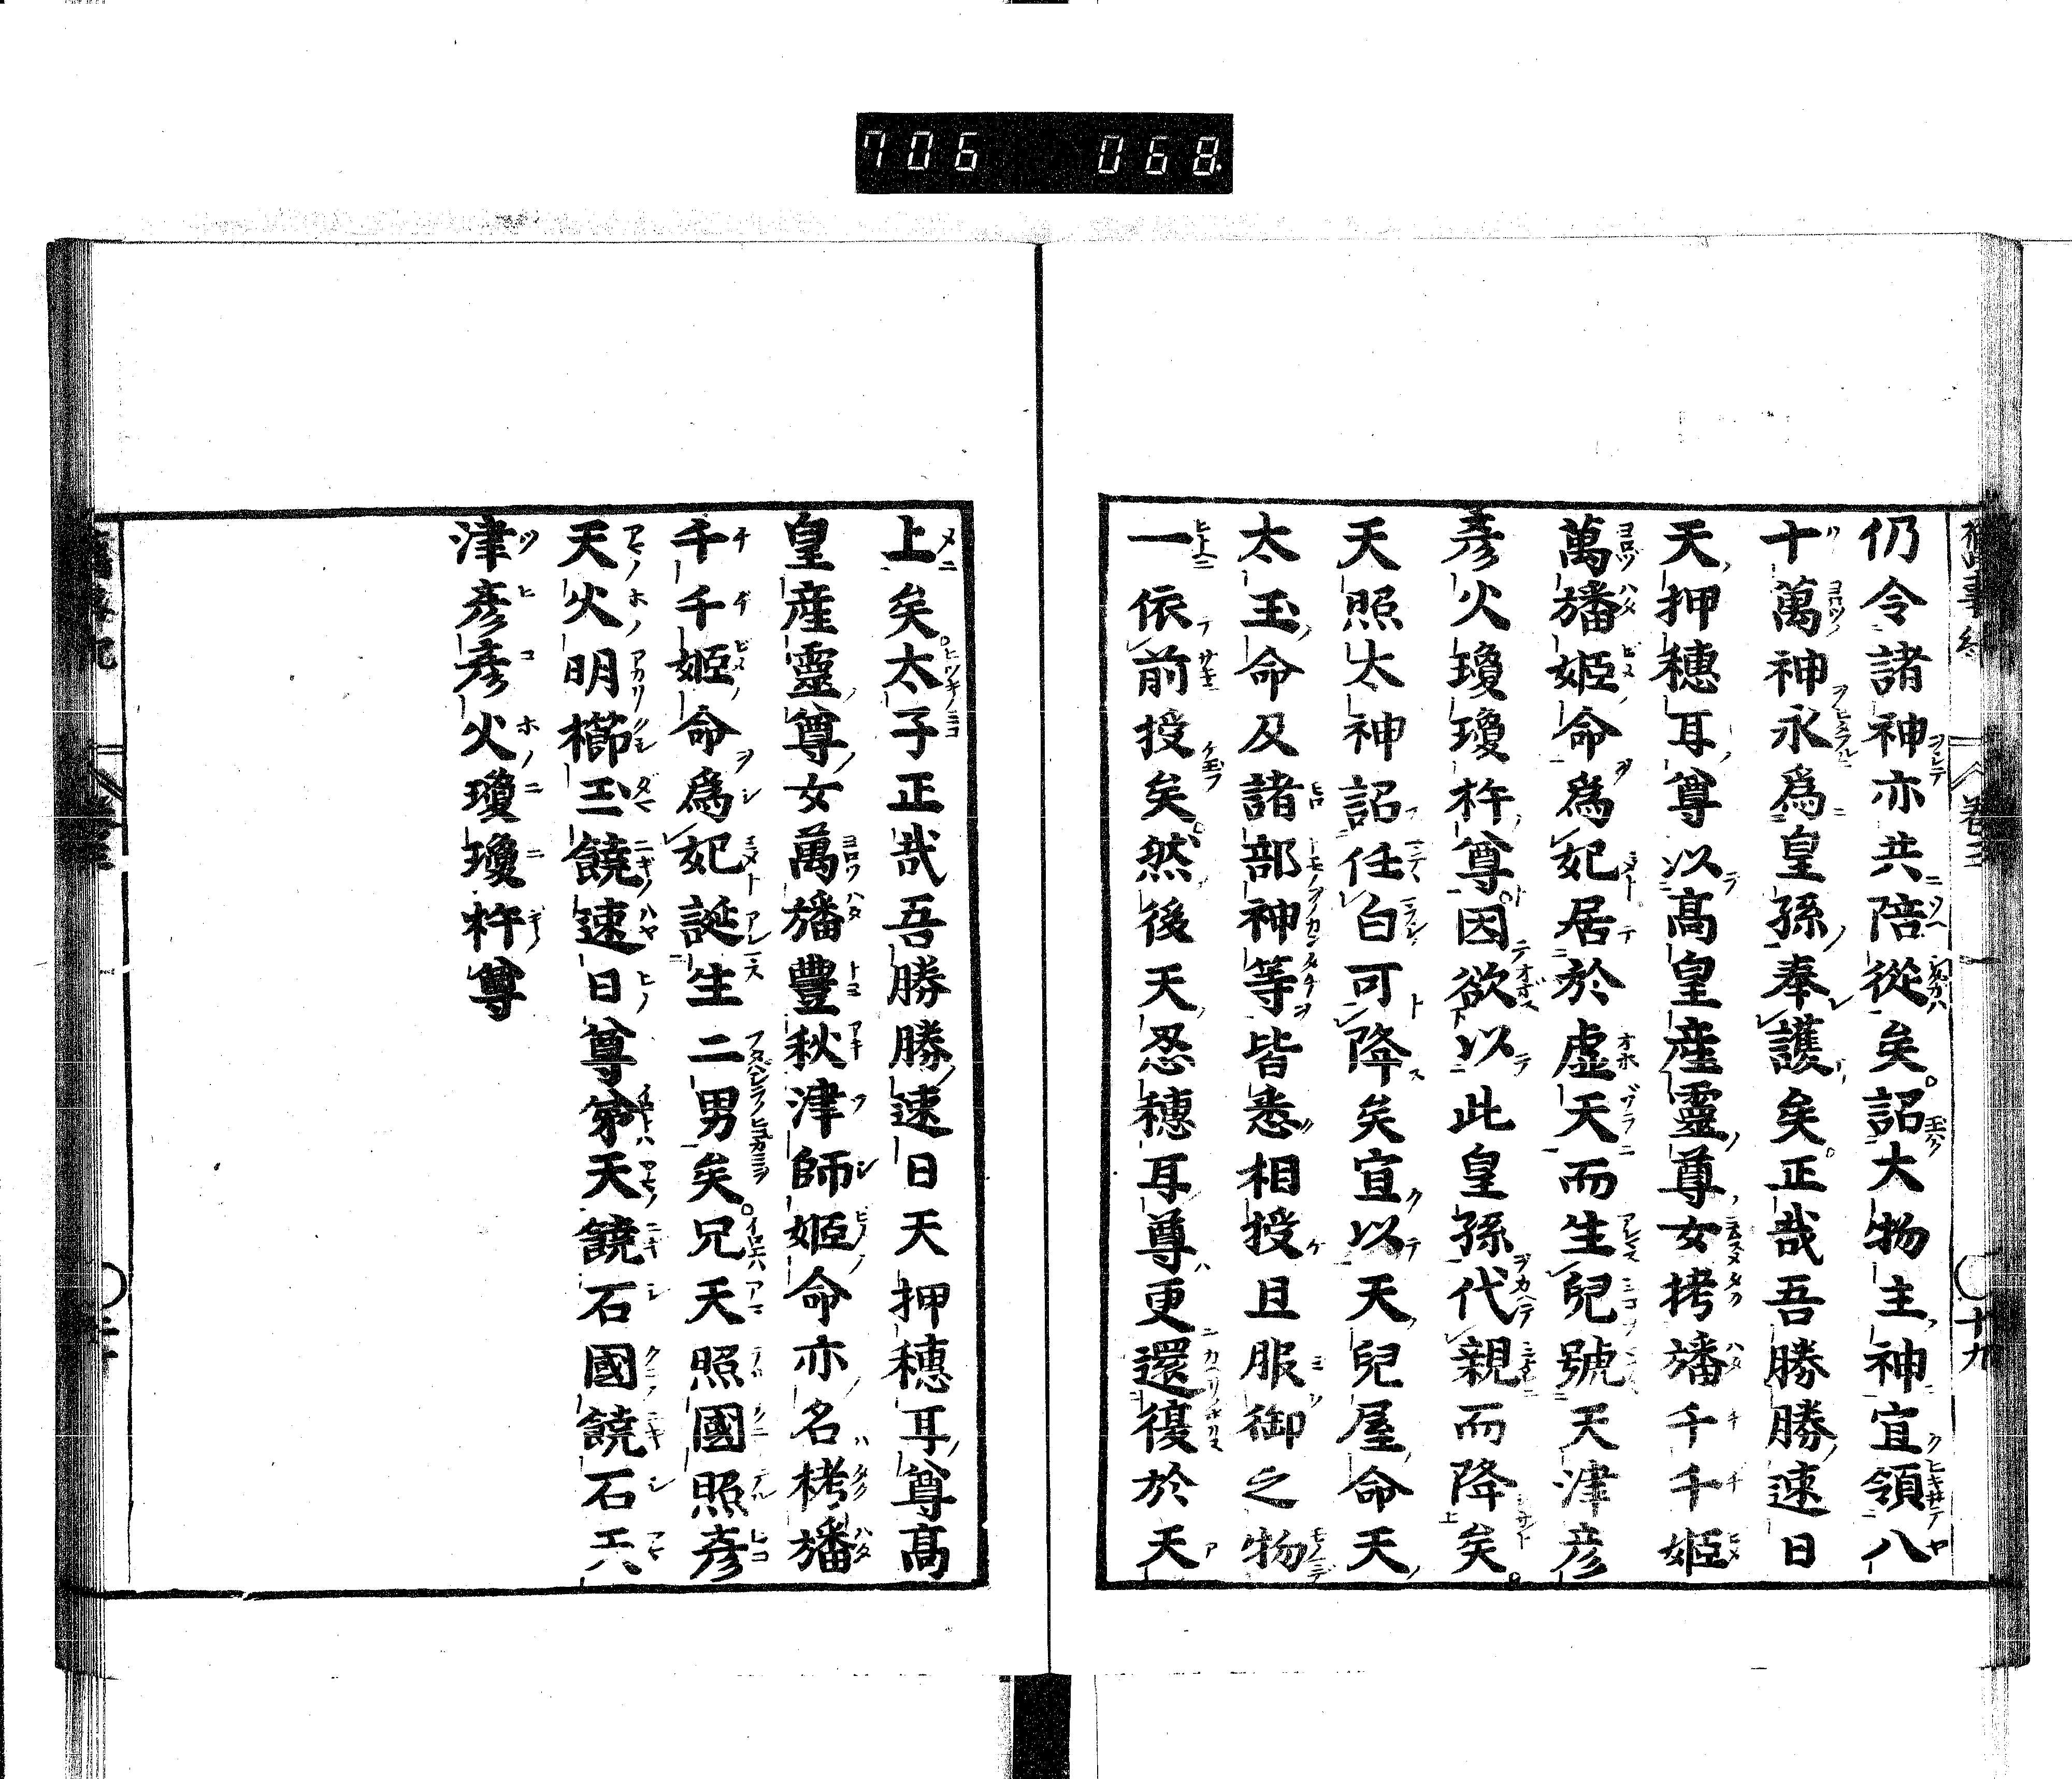 706 068
仍令諸神亦共陪從矣詔大物主神宜領八
十萬神永爲皇孫奉護矣正哉吾勝勝速日
天押穗耳尊以高皇産靈尊女栲幡千千姫
萬幡姫命爲妃居於虚天而生兒號天津彦
彦火瓊瓊杵尊因欲以此皇孫代親而降矣
天照太神詔任白可降矣宣以天兒屋命天
太玉命及諸部神等皆悉相授且服御之物
一依前授矣然後天忍穗耳尊更還復於天
上矣太子正哉吾勝勝速日天押穗耳尊高
皇産靈尊女萬幡豐秋津師姫命亦名栲幡
千千姫命爲妃誕生二男矣兄天照國照彦
天火明櫛玉饒速日尊弟天饒石國饒石天
津彦彦火瓊瓊杵尊
卷三
十九